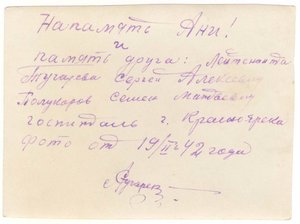 На память Ани!
и
память друга: Лейтенанта
Тугарева Сергей Алексеевич
Полукаров Семен Матвеевич
госпиталь г. Красноярска
фото от 19/II 42 года